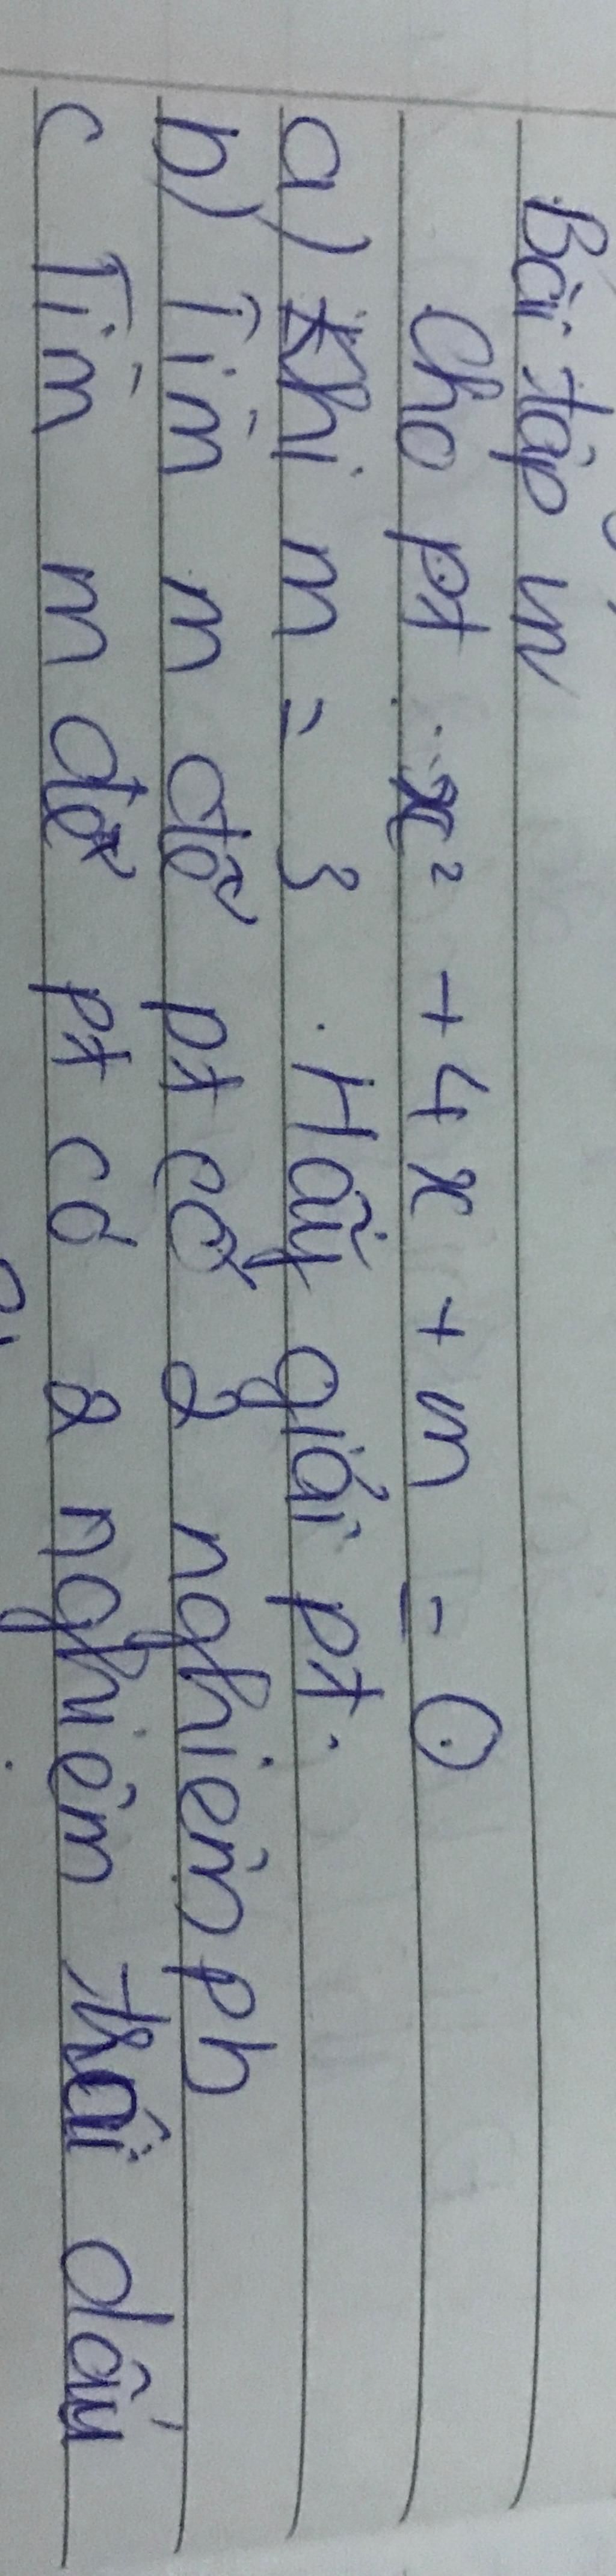 Bài tập VN
Cho pt : x² + 4x + m = 0
a) Khi m = 3. Hãy giải pt.
b) Tìm m để pt có 2 nghiệm pb
c Tìm m để pt có 2 nghiệm trái dấu